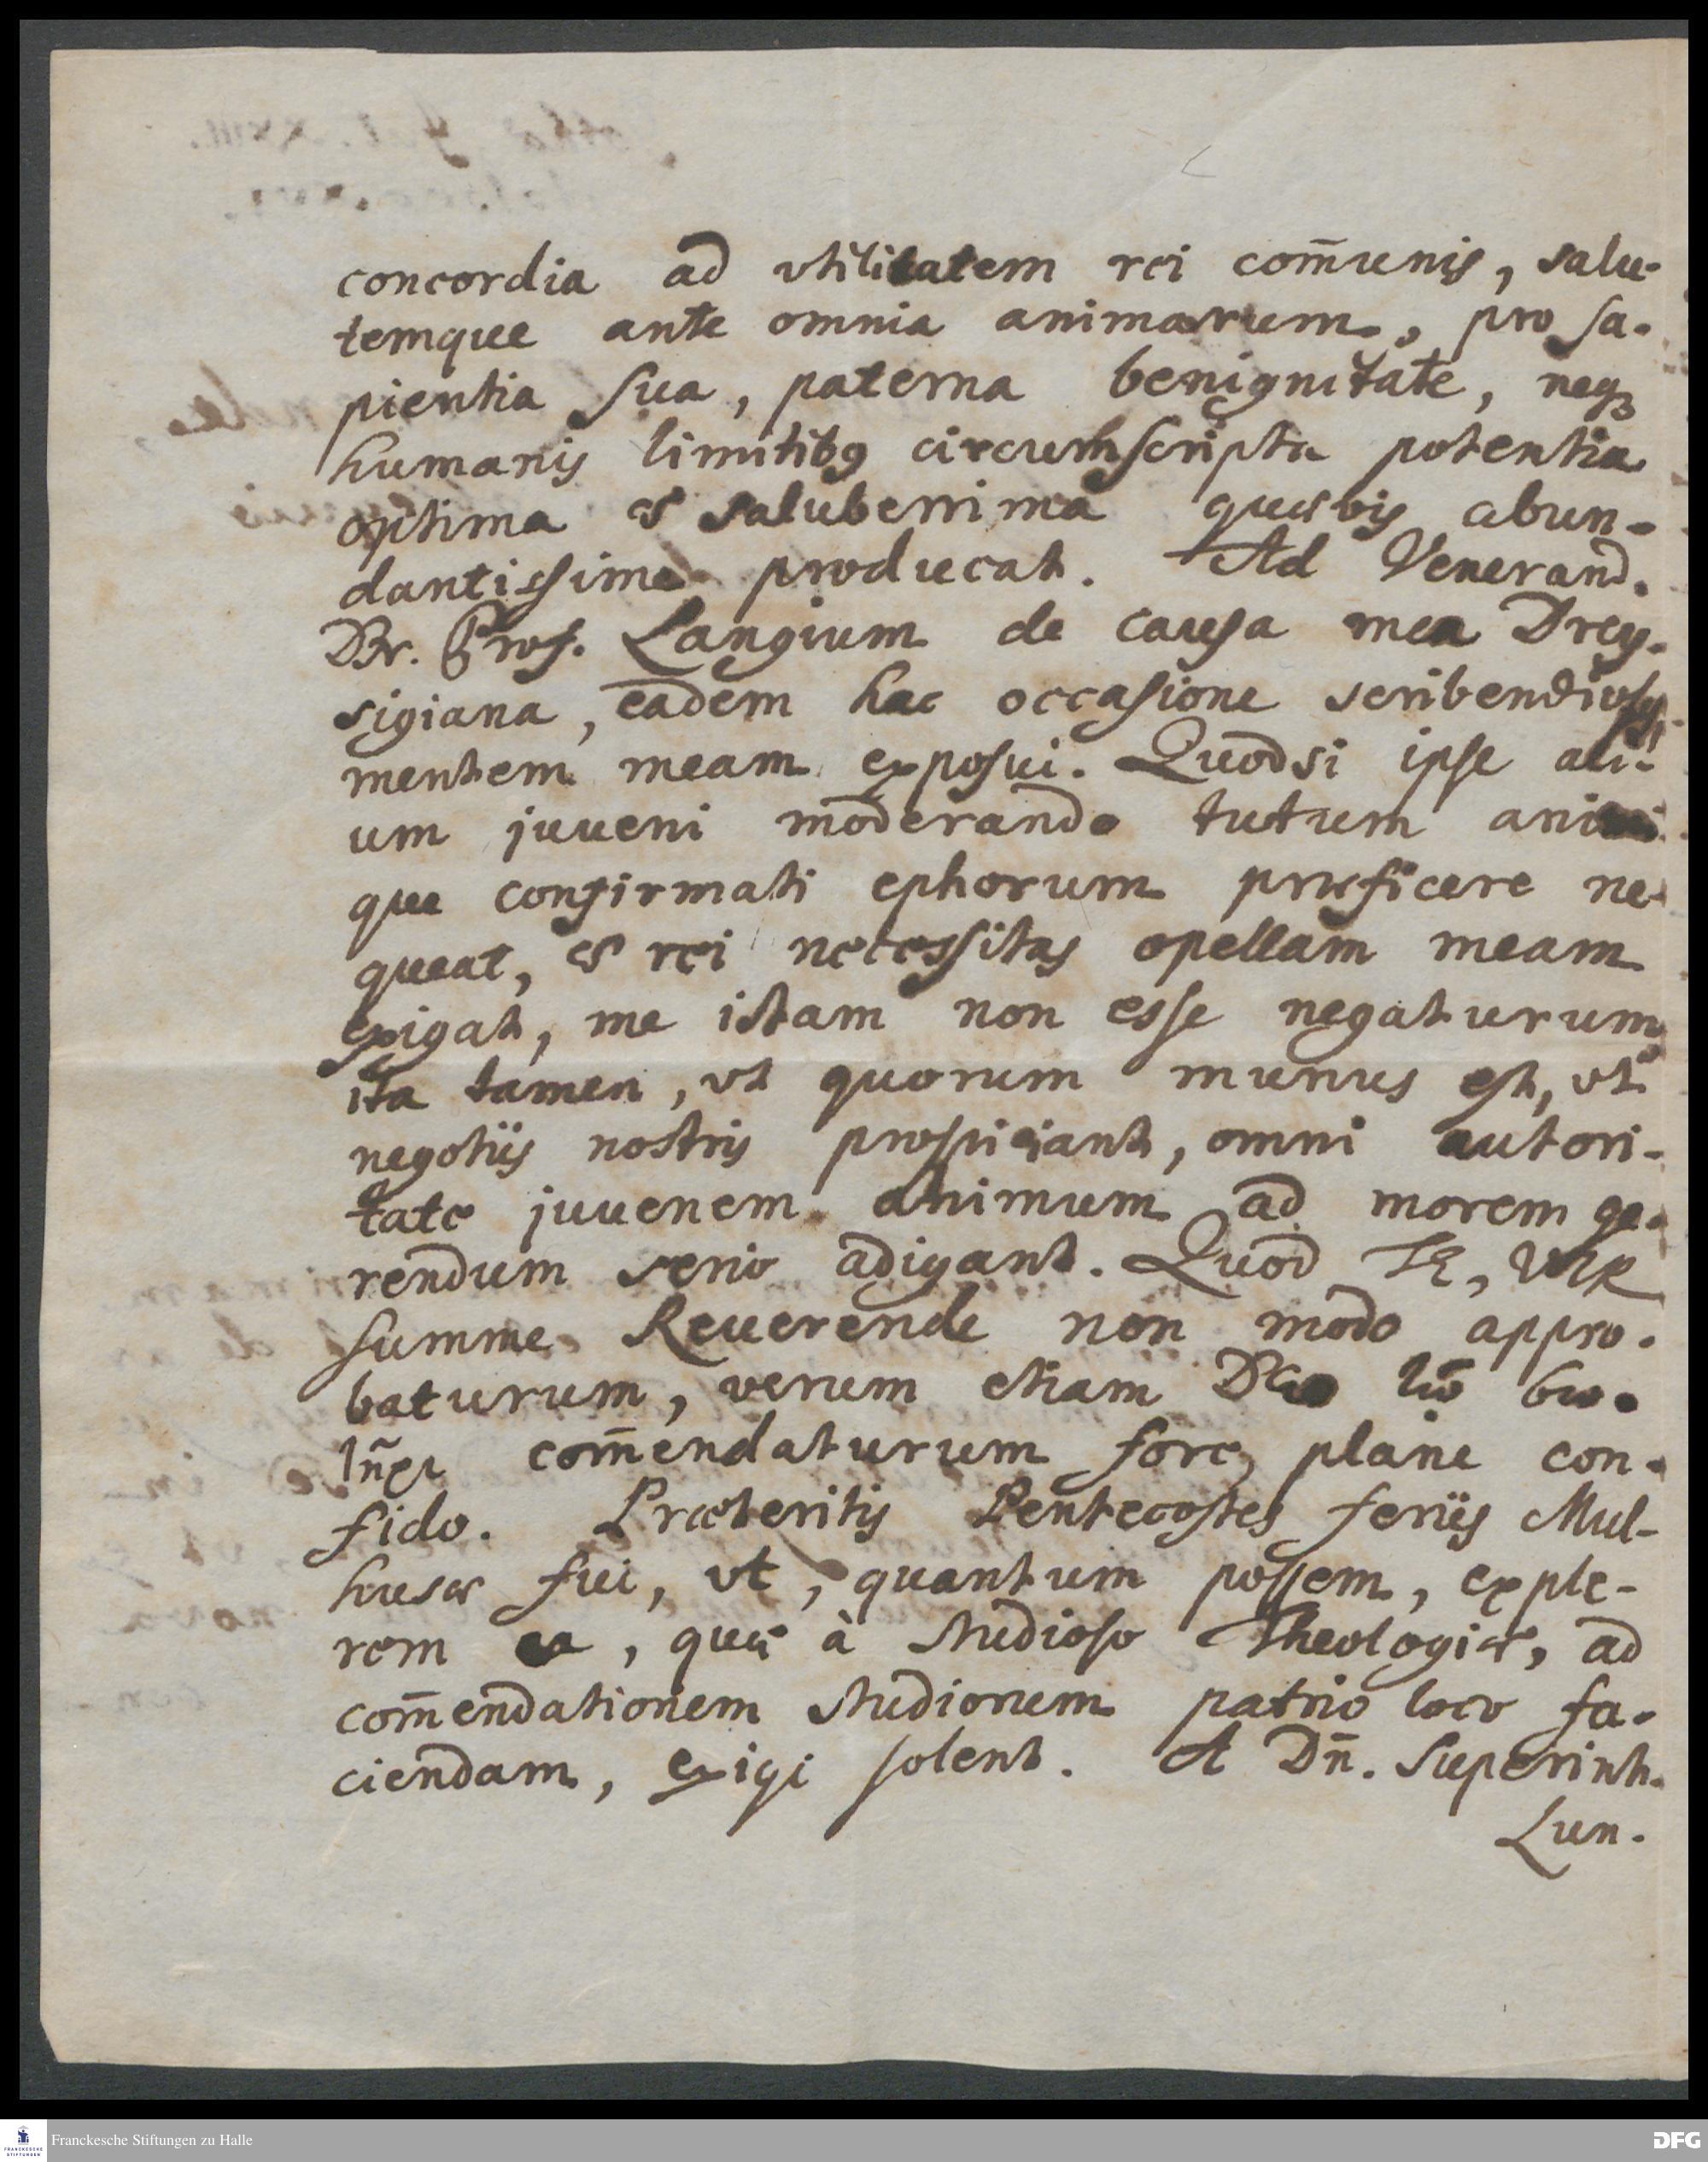 concordia ad vtilitatem rei com̄unis, salu-
temque ante omnia animarum, pro sa-
pientia sua, paterna benignitate, neqꝫ
humanis limitibꝯ circumscripta potentia
optima & saluberrima quævis abun-
dantissime producat. Ad Venerand.
Dn. Prof. Langium de causa mea Drey-
sigiana, eadem hac occasione scribendi usꝯ
mentem meam exposui. Quodsi ipse ali-
um juueni moderando tutum animi
que confirmati ephorum præficere ne-
queat, & rei necessitas opellam meam
exigat, me istam non esse negaturum,
ita tamen, vt quorum munus est, vt
negotiis nostris prospiciant, omni autori-
tate juuenem animum ad morem ge-
rendum serio adigant. Quod TE, VIR
summe Reuerende non modo appro-
baturum, verum etiam
com̄endaturum fore, plane con-
fido. Præteritis Pentecostes feriis Mul-
husæ fui, vt, quantum possem, exple-
rem ea, quæ à studioso Theologiæ, ad
com̄endationem studiorum patrio loco fa-
ciendam, exigi solent. A Dn̄. Superint.
Lun-
Franckesche Stiftungen zu Halle
FRANCKESCHE STIFTUNGEN
DFG